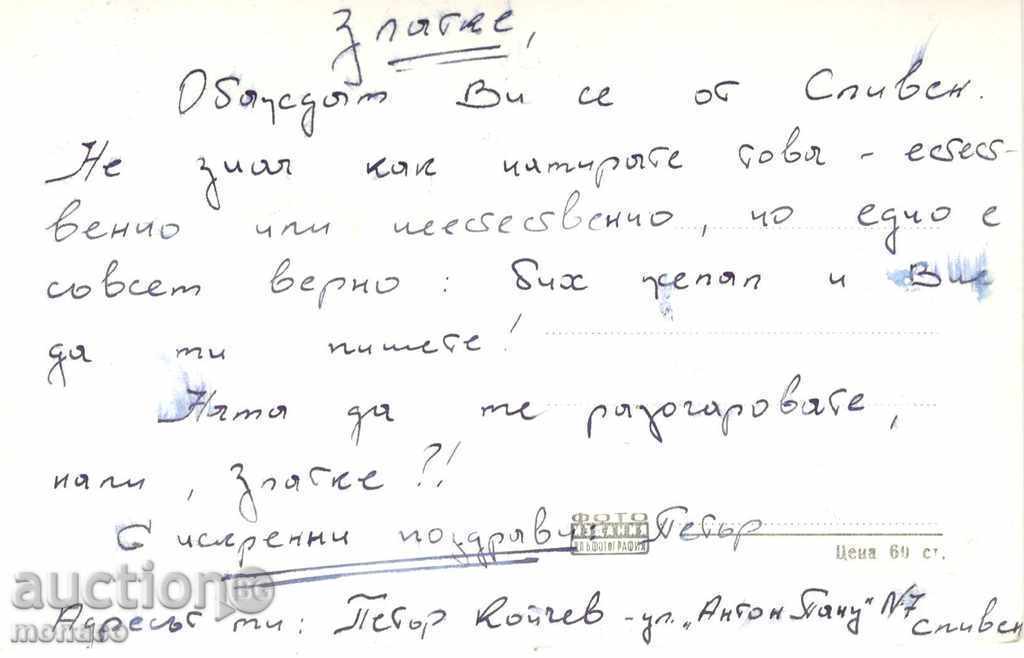 Златке,
Обаждам Ви се от Сливен.
Не зная как намирате това - естест-
венно или неестественно, но едно е
съвсем верно: бих желал и Вие
да ми пишете!
Нама да ме разочаровате,
нали, Златке?!
С искренни поздрави: Петър
ФОТО
ИЗДАНИЯ
ДП БЪЛ ФОТОГРАФИЯ
Цена 60 ст.
Адресът ми: Петър Койчев - ул. „Антон Пану" №7
Сливен
auction BG
monako